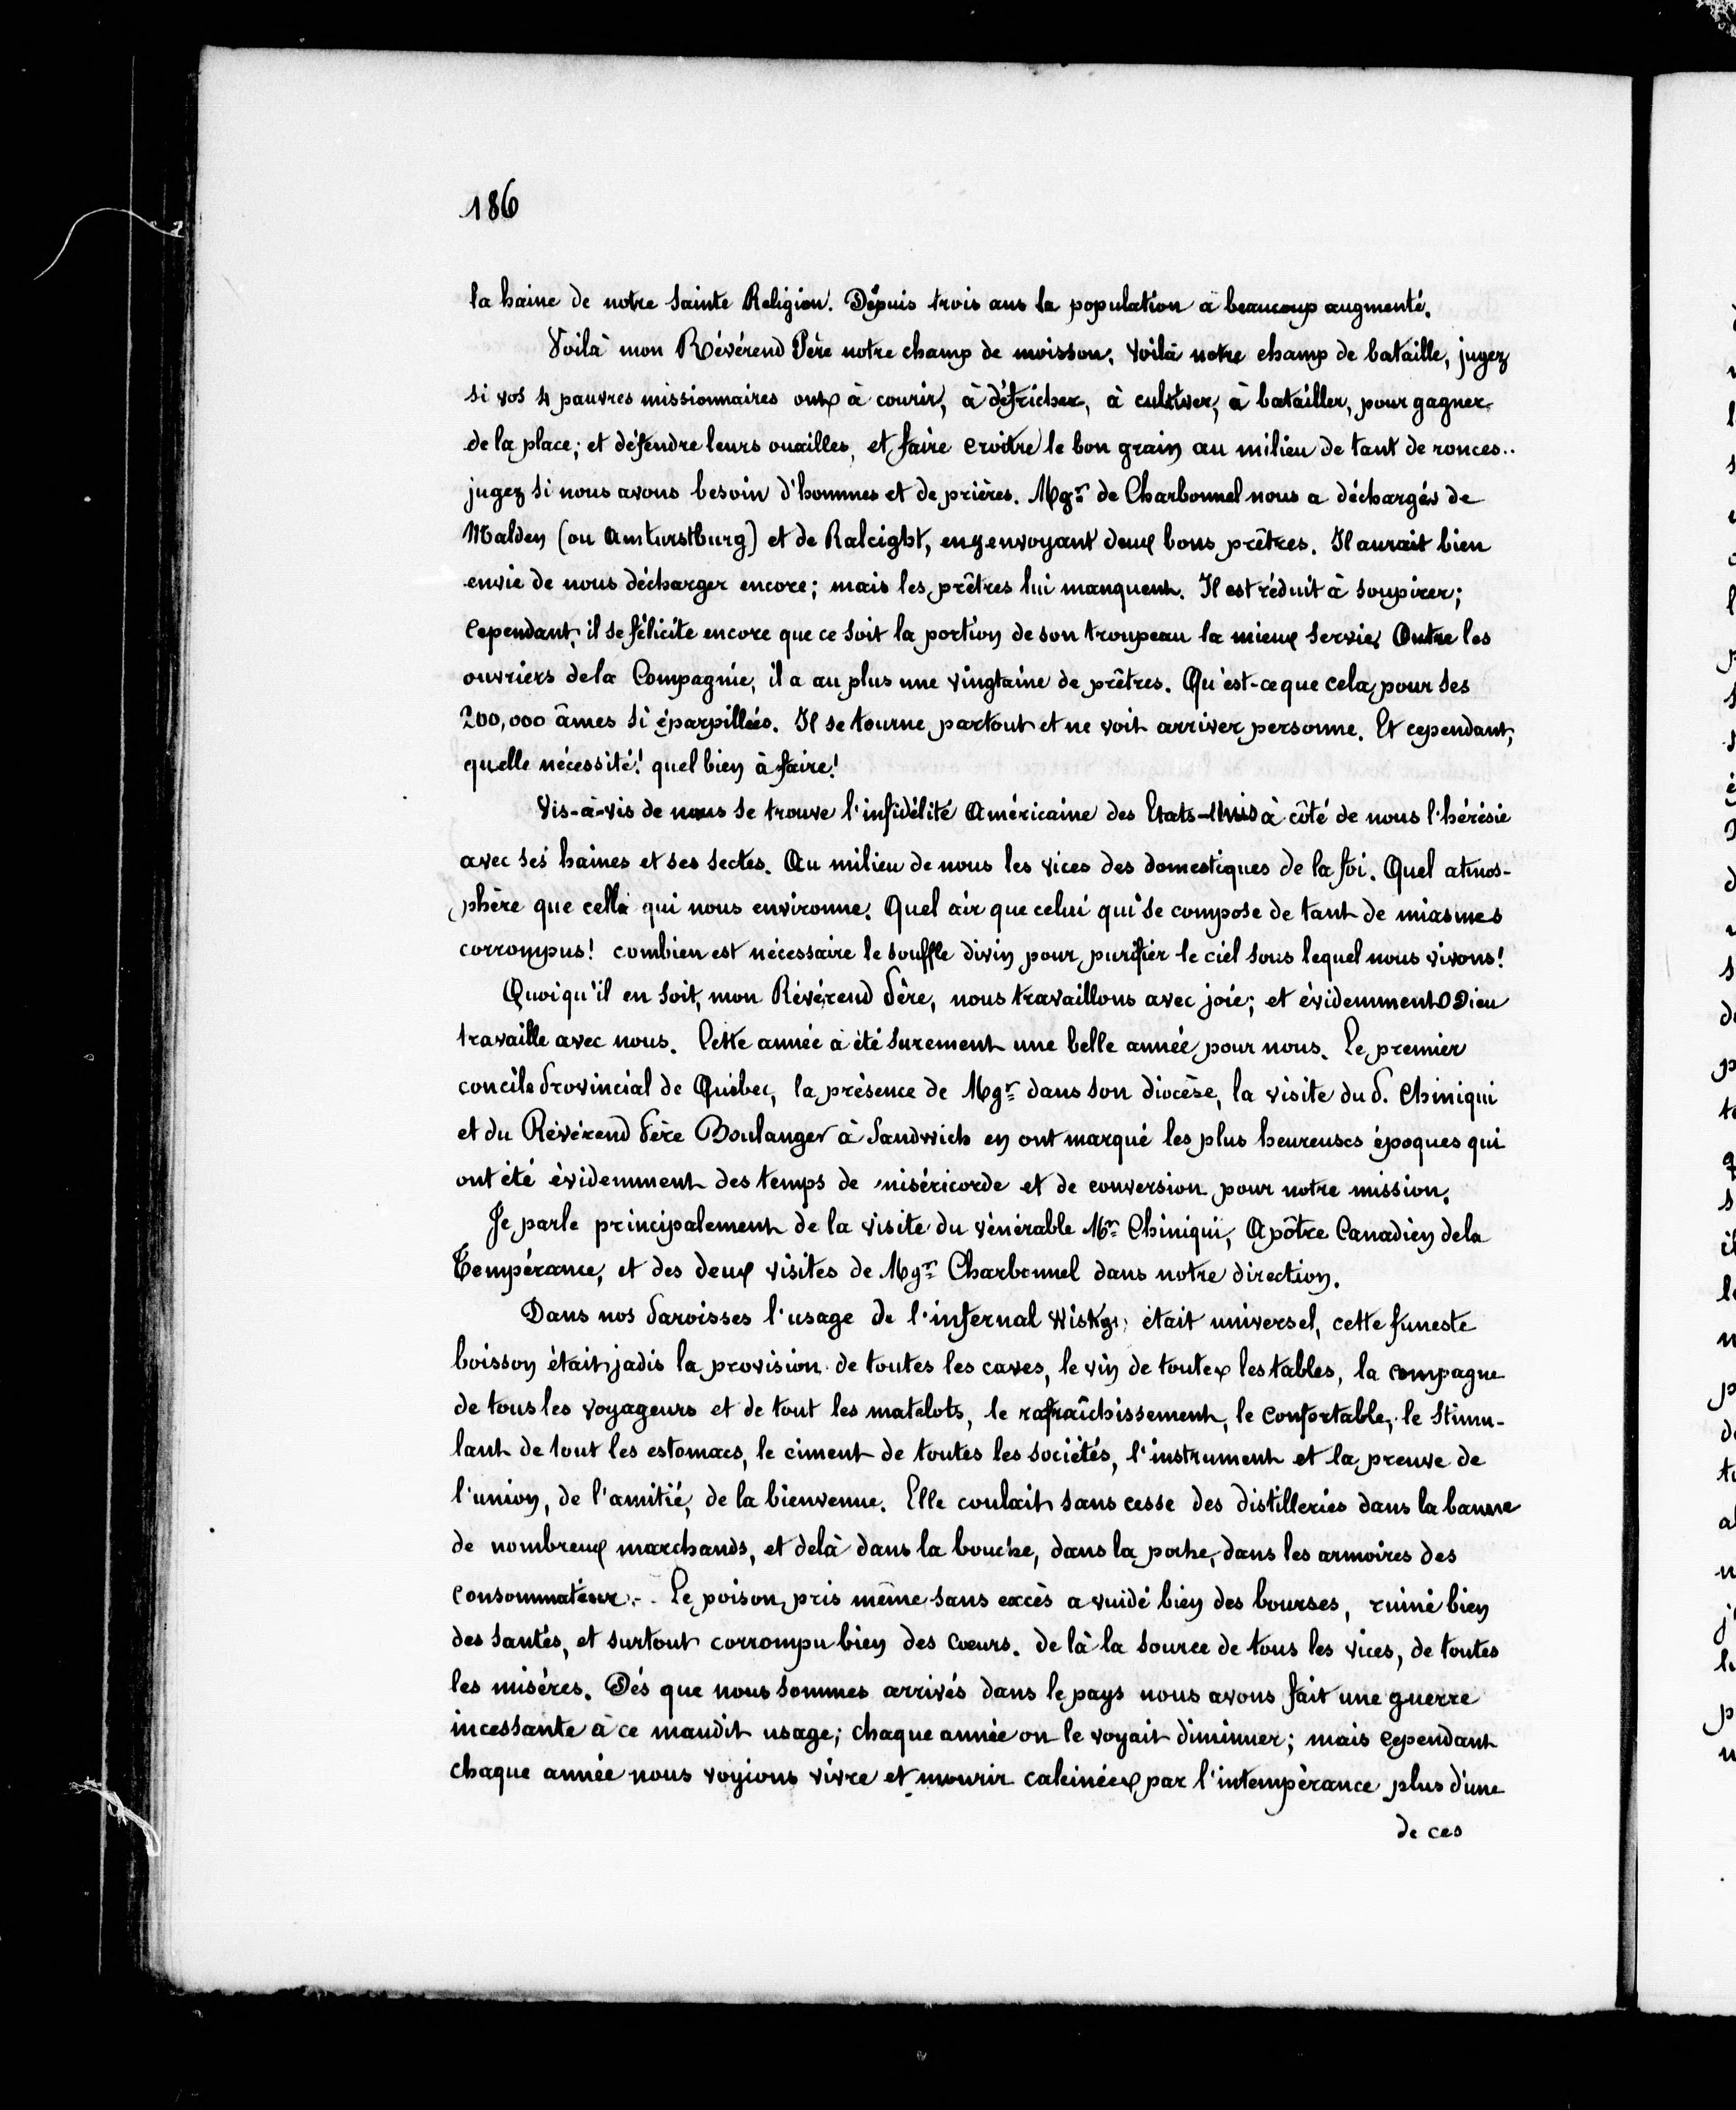 186
la haine de notre sainte Religion. Dépuis trois ans la population a beaucoup augmenté.
Voilà mon Révérend Père notre champ de moisson, voilà notre champ de bataille, jugez
si vos 4 pauvres missionnaires ont à courir, à défricher, à cultiver, à batailler, pour gagner
de la place; et défendre leurs ouailles, et faire croître le bon grain au milieu de tant de ronces..
jugez si nous avons besoin d'hommes et de prières. Mgr de Charbonnel nous a déchargés de
Malden (ou Amhurstburg) et de Raleight, en y envoyant deux bons prêtres. Il aurait bien
envie de nous décharger encore; mais les prêtres lui manquent. Il est réduit à soupirer;
Cependant, il se félicite encore que ce soit la portion de son troupeau la mieux servie. Outre les
ouvriers de la Compagnie, il a au plus une vingtaine de prêtres. Qu'est-ce que cela, pour ses
200,000 âmes si éparpillées. Il se tourne partout et ne voit arriver personne. Et cependant,
quelle nécessité! quel bien à faire!
Vis-à-vis de nous se trouve l'infidélité Américaine des Etats-Unis à côté de nous l'hérésie
avec ses haines et ses sectes. Au milieu de nous les vices des domestiques de la foi. Quel atmos-
phère que celle qui nous environne! Quel air que celui qui se compose de tant de miasmes
corrompus! combien est nécessaire le souffle divin pour purifier le ciel sous lequel nous vivons!
Quoiqu'il en soit, mon Révérend Père, nous travaillons avec joie; et évidemment Dieu
travaille avec nous. Cette année a été surement une belle année pour nous. Le premier
concile Provincial de Québec, la présence de Mgr dans son diocèse, la visite du P. Chiniqui
et du Révérend Père Boulanger à Sandwich en ont marqué les plus heureuses époques qui
ont été évidemment des temps de miséricorde et de conversion pour notre mission.
Je parle principalement de la visite du vénérable Mr Chiniqui, Apôtre Canadien de la
Tempérance, et des deux visites de Mgr Charbonnel dans notre direction.
Dans nos Paroisses l'usage de l'infernal Wisky était universel, cette funeste
boisson était jadis la provision de toutes les caves, le vin de toutes les tables, la compagne
de tous les voyageurs et de tout les matelots, le rafraîchissement, le confortable, le stimu-
lant de tout les estomacs, le ciment de toutes les sociétés, l'instrument et la preuve de
l'union, de l'amitié, de la bienvenue. Elle coulait sans cesse des distilleries dans la
de nombreux marchands, et delà dans la bouche, dans la poche, dans les armoires des
consommateur.. Le poison pris même sans excès a vuidé bien des bourses, ruiné bien
des santés, et surtout corrompu bien des cœurs. de là la source de tous les vices, de toutes
les misères. Dés que nous sommes arrivés dans le pays nous avons fait une guerre
incessante à ce maudit usage; chaque année on le voyait diminuer; mais cependant
chaque année nous voyions vivre et mourir calcinées par l'intempèrance plus d'une
de ces